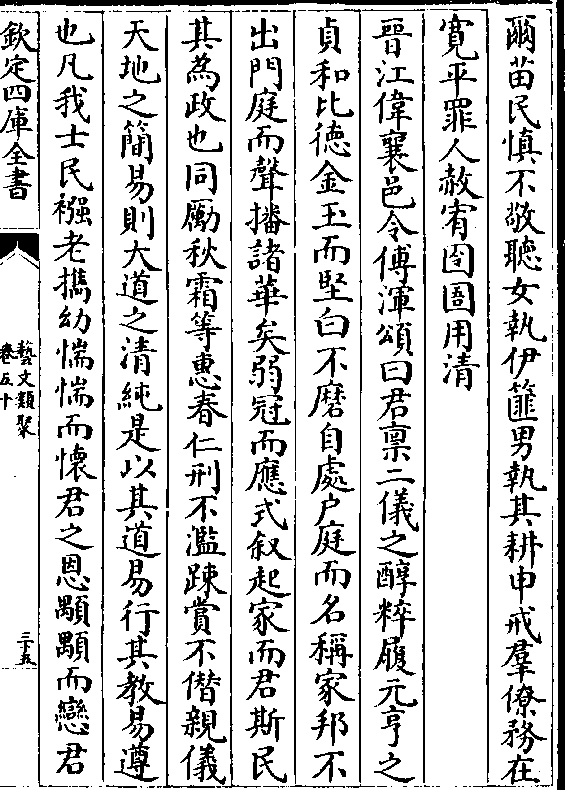 爾苗民慎不敬聽女執伊篚男執其耕申戒羣僚務在
寛平罪人赦宥囹圄用清
晉江偉襄邑令傅渾頌曰君禀二儀之醇粹履元亨之
貞和比徳金玉而堅白不磨自處户庭而名稱家邦不
出門庭而聲播諸華矣弱冠而應式叙起家而君斯民
其為政也同勵秋霜等惠春仁刑不濫踈賞不僭親儀
天地之簡易則大道之清純是以其道易行其教易遵
也凡我士民襁老擕幼惴惴而懷君之恩顒顒而戀君
欽定四庫全書
藝文類聚
卷五十
三十五